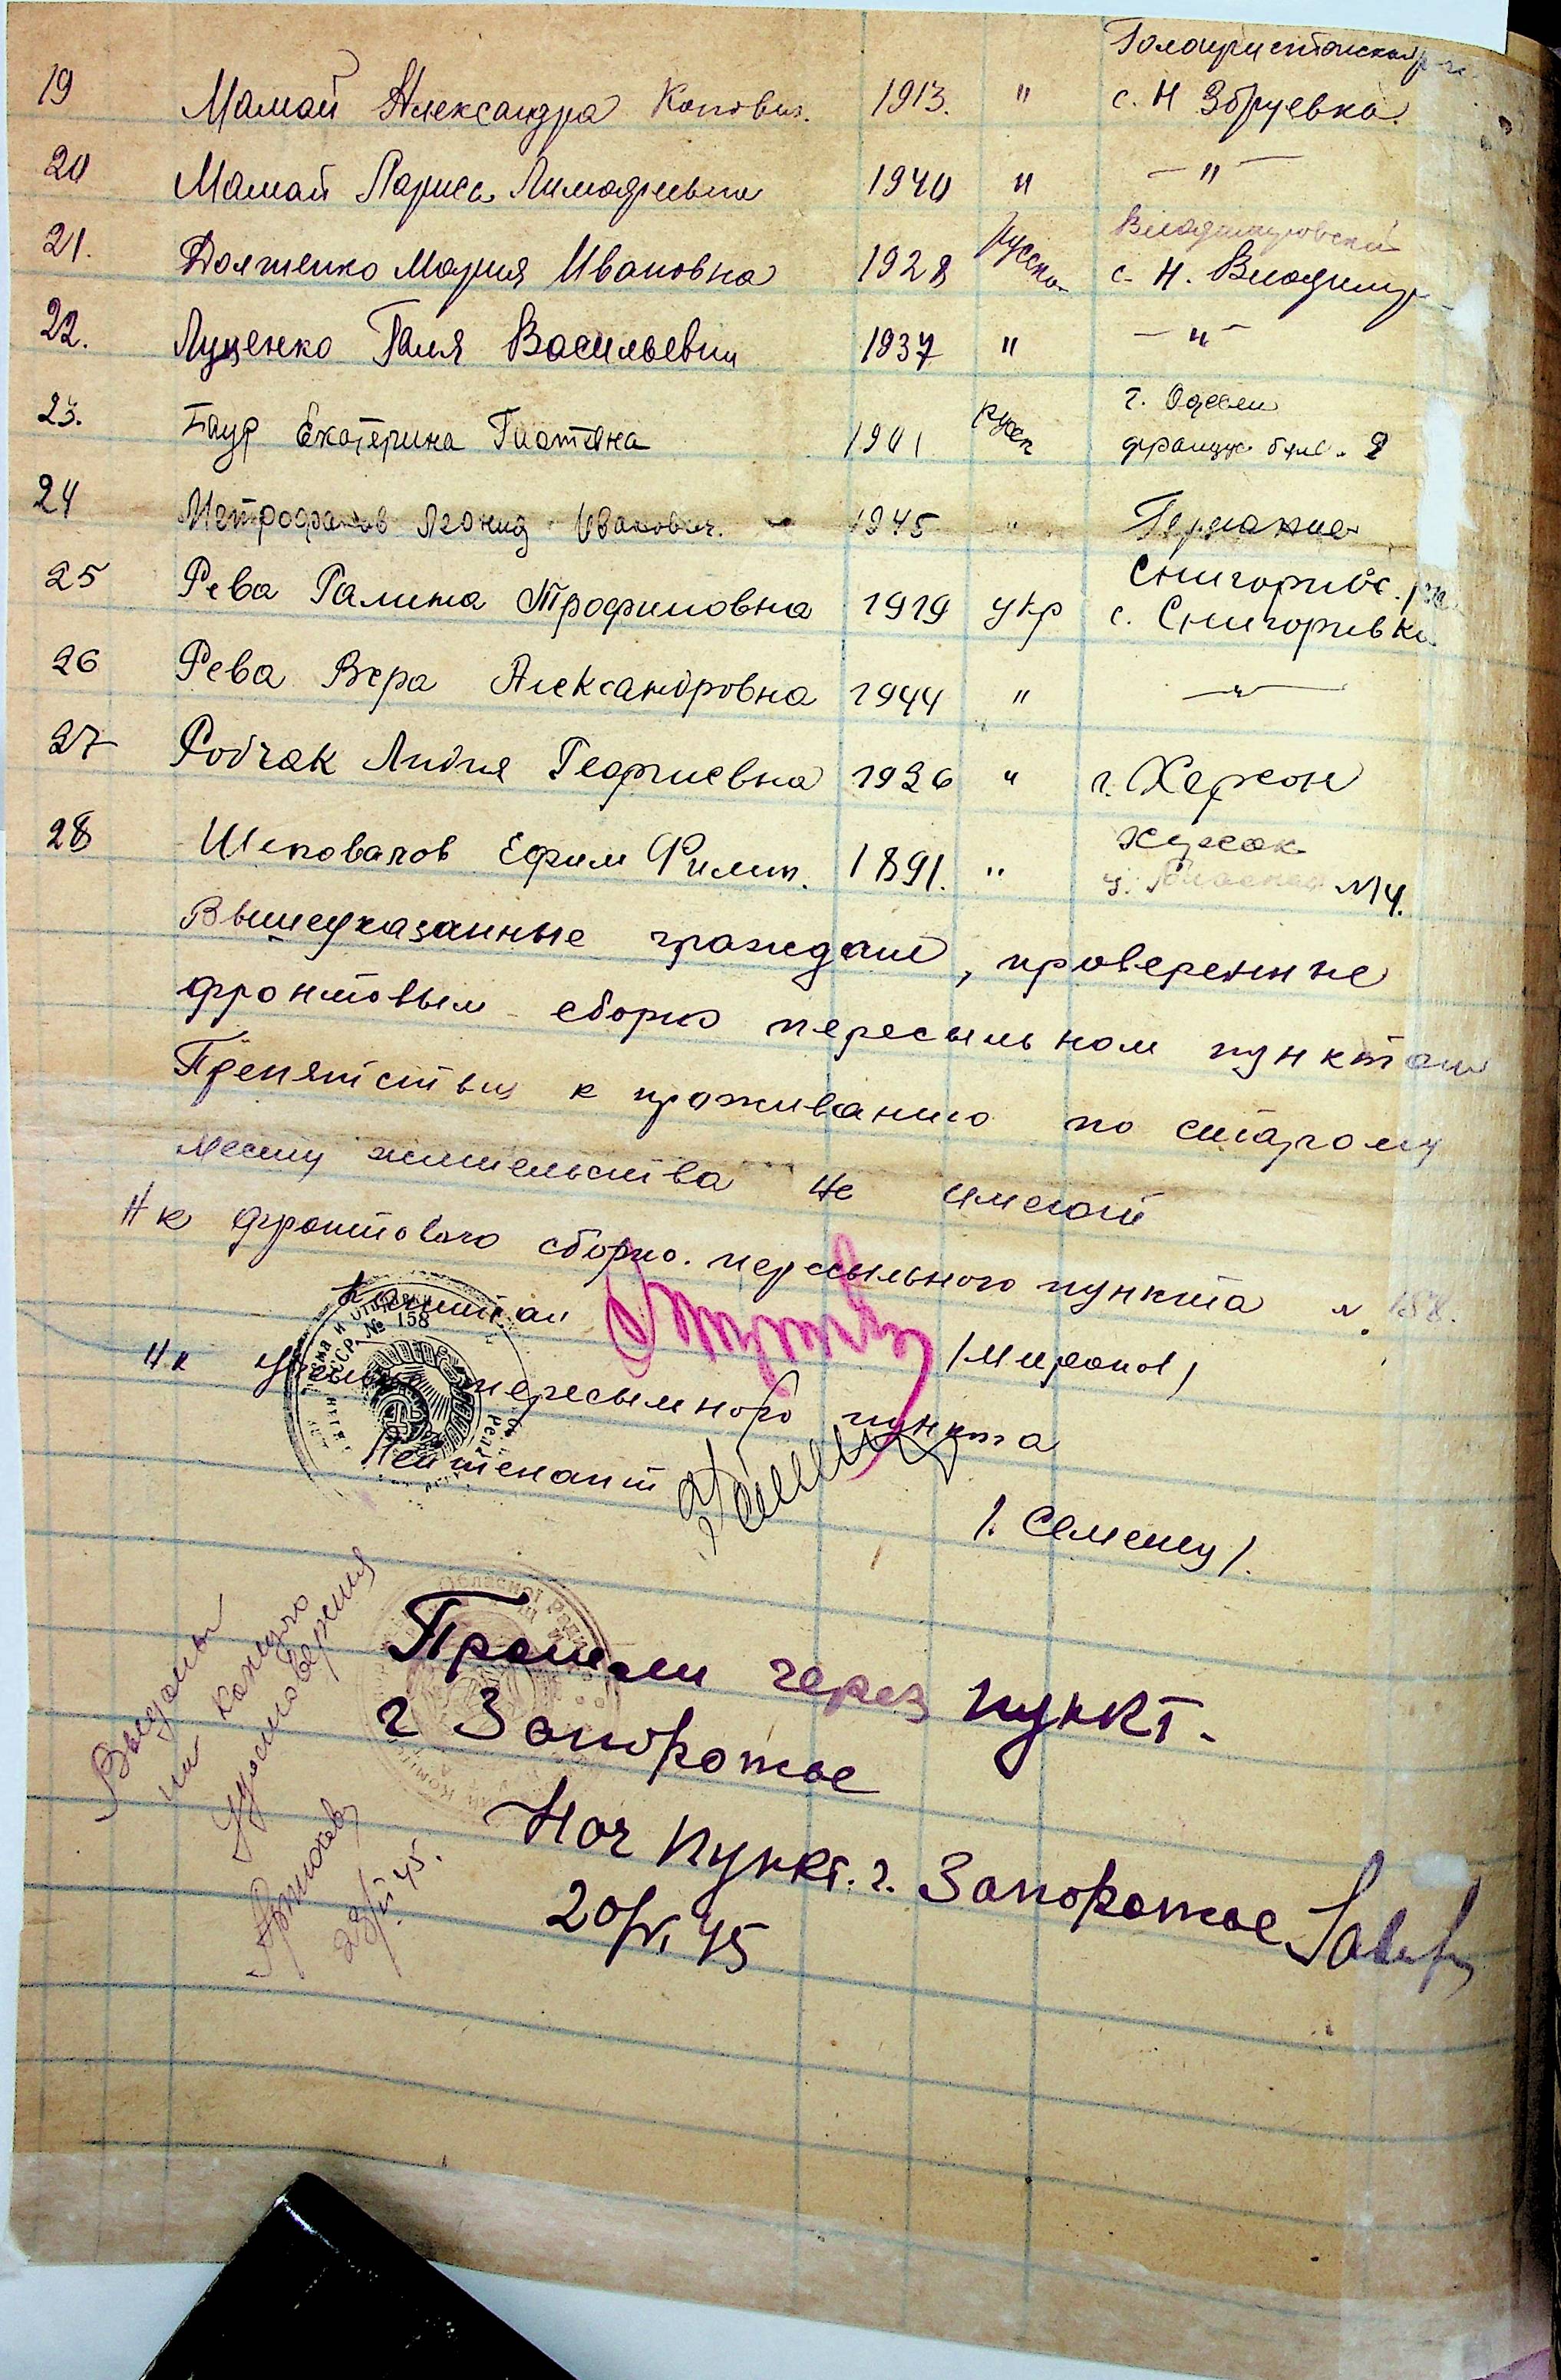 19 Мамай Александра Коновна. 1913. " Голопристанский р-н
с. Н Збруевка
20 Мамай Лариса 1940 " — " —
21. Долженко Мария Ивановна 1928 русская Владимировский
с. Н. Владимир
22. Луценко Галя Васильевна 1937 " — " —
23. Бауэр Екатерина 1901 русск г. Одесса
француз. бул. 2
24 Метрофанов Леонид Иванович. 1945 " Германия
25 Рева Галина Трофимовна 1919 укр Снигорив.
с. Снигоривка
26 Рева Вера Александровна 1944 " — " —
27 Лидия Георгиевна 1926 " г. Херсон
28 Шаповалов Ефим Филип. 1891. " Херсон
N14.
Вышеуказанные граждане, проверенные
фронтовым сборно пересыльном пунктом
Препятствия к проживанию по старому
месту жительства не имеют
Н к фронтового сборно. пересыльного пункта N. 158.
Капитан /Миронов/
Н к пересыльного пункта
Лейтенант
/. Семенец /.
№ 158
Выданы
на каждого
удостоверения
Прошли через пункт.
г Запорожье
Нач пункт. г. Запорожье
20/VI 45